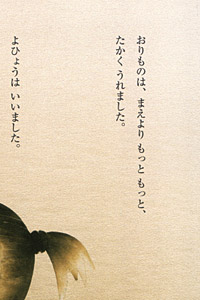 おりものは、まえより もっと もっと、
たかく うれました。
よひょうは いいました。